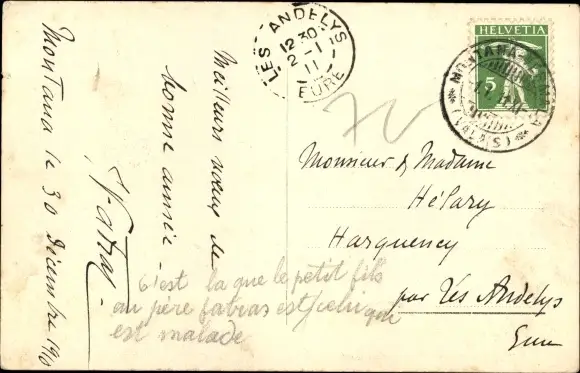 Montana le 30 Décembre 190
Meilleurs voeux de
bonne année -
LES ANDELYS
12 30
2-1
11
EURE
HELVETIA
5
MONTANA
(VALAIS)
Monsieur & Madame
Hélary
Harquency
par Les Andelys
Eure
C'est la que le petit fils
au père fabras est celui qui
est malade